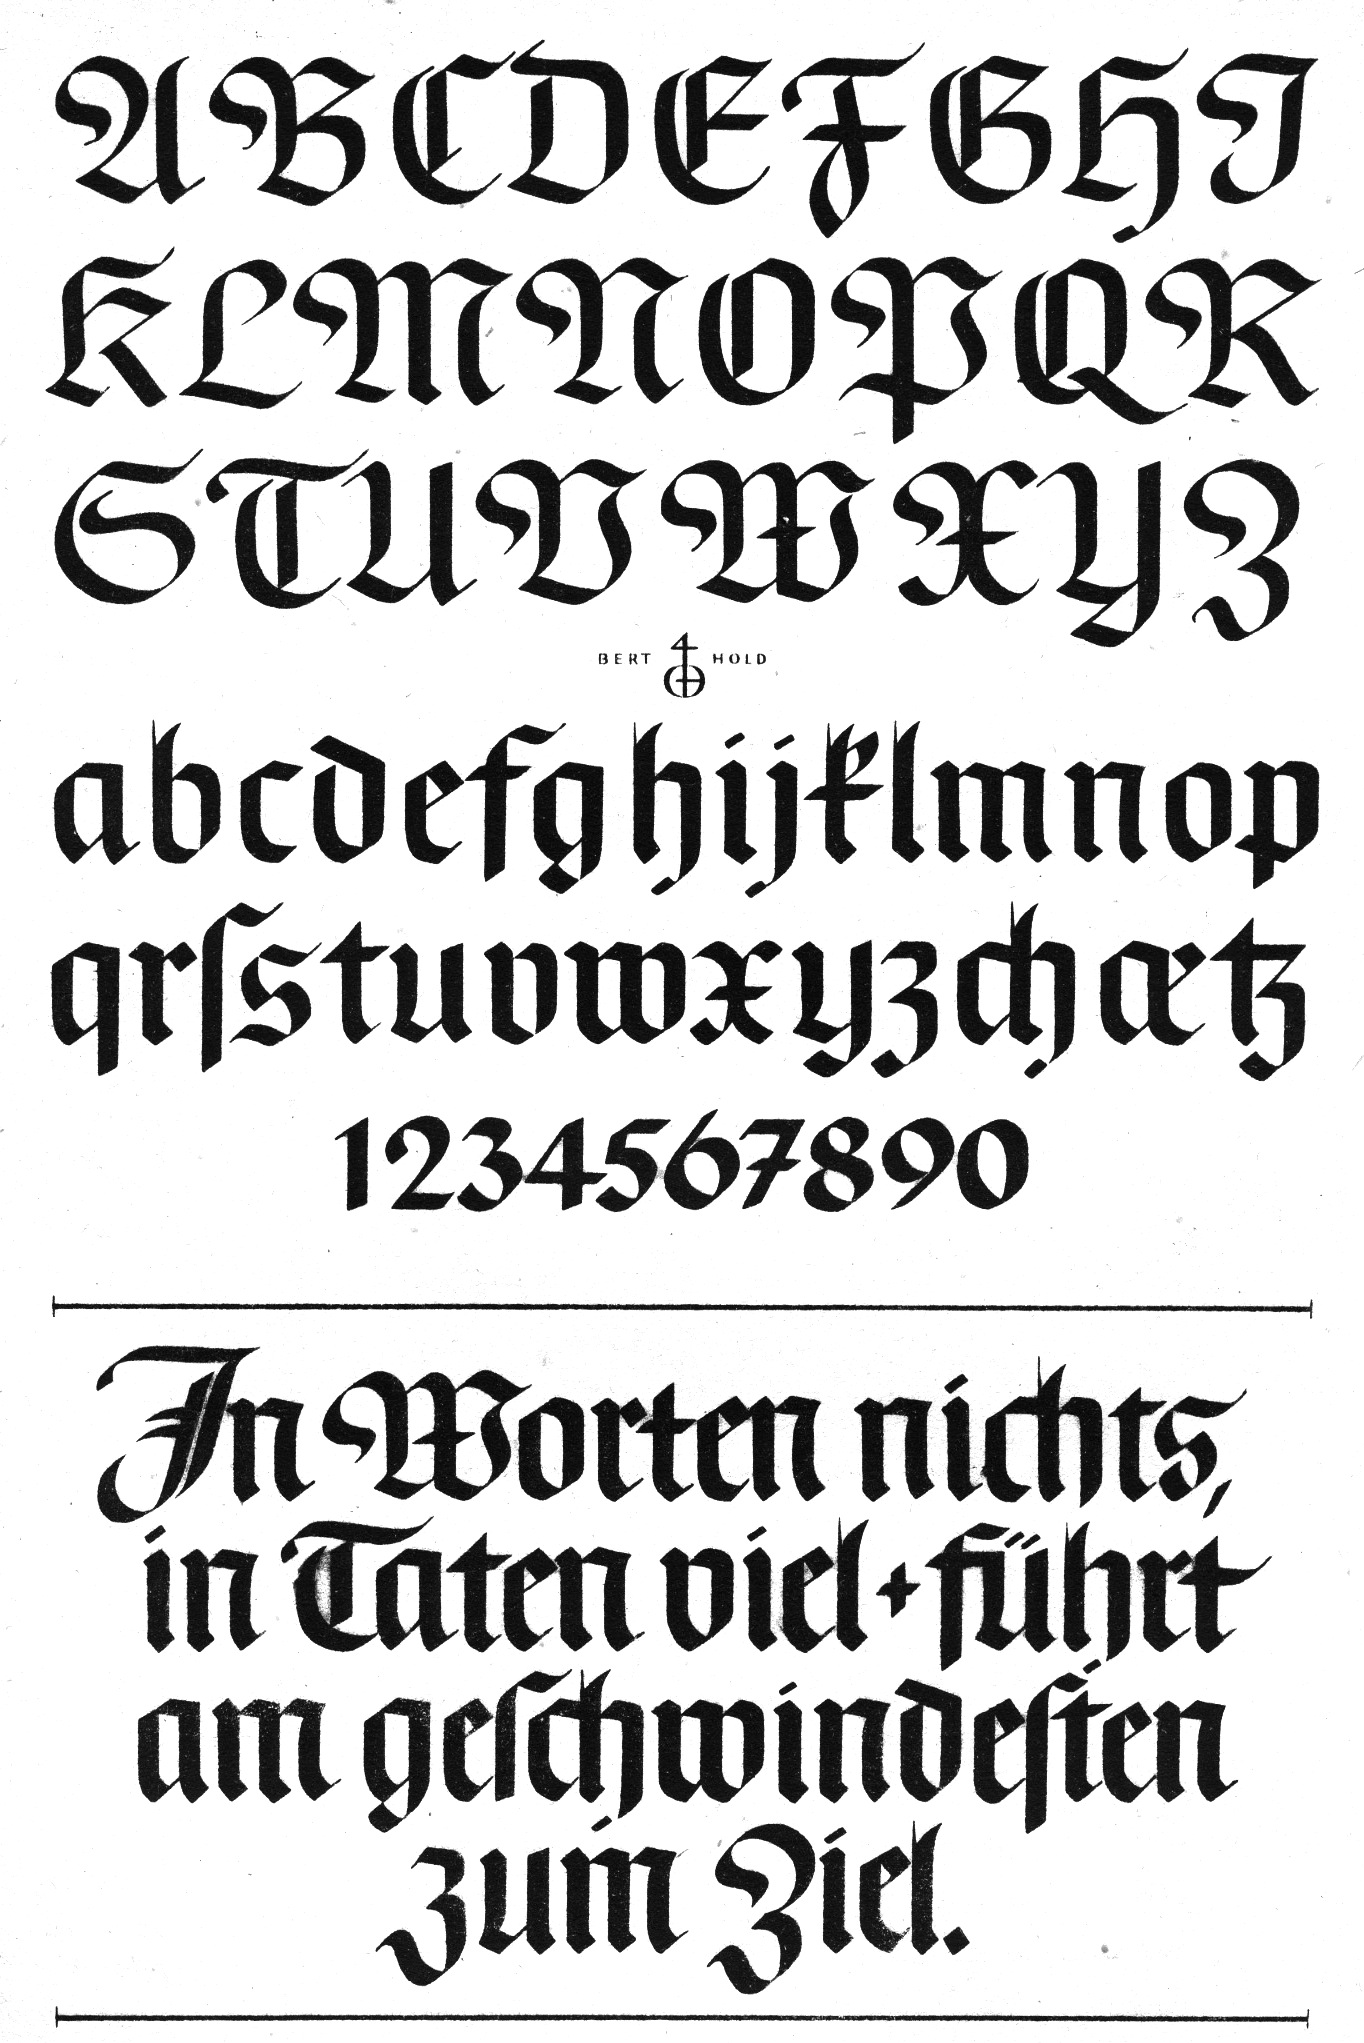 ABCDEFGHI
KLMNOPQR
STUVWXYZ
BERT HOLD
abcdefghijklmnop
qrſstuvwxyzchætz
1234567890
In Worten nichts,
in Taten viel + führt
am geſchwindeſten
zum Ziel.